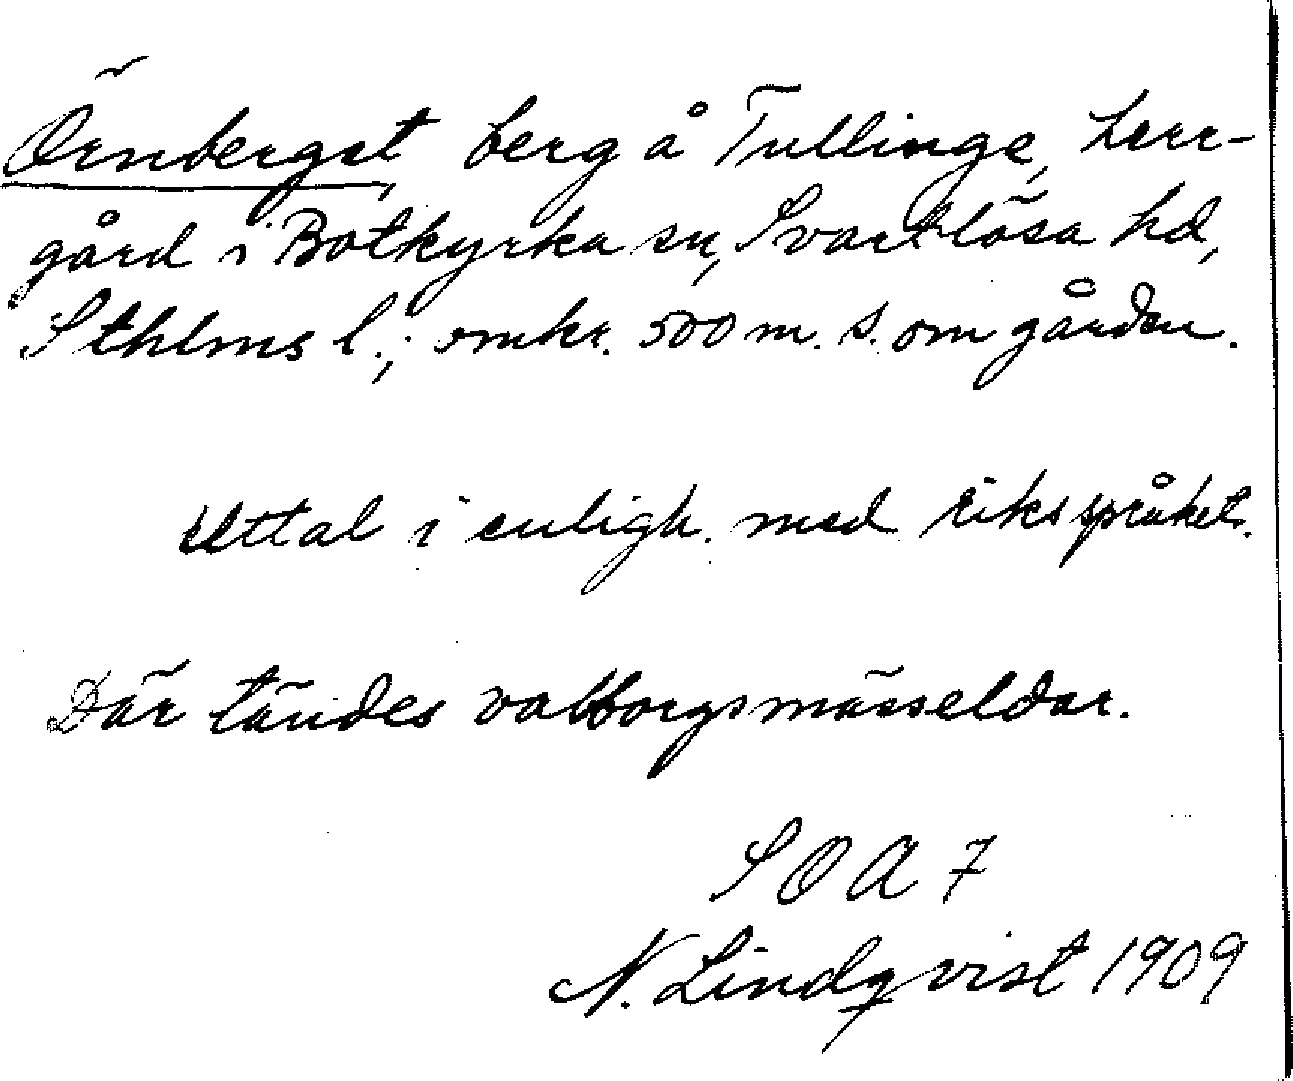 Örnberget, berg å Tullinge, herr-
gård i Botkyrka sn, Svartlösa hd,
Sthlms l.; omkr. 500 m. s. om gården.
Uttal i enligh. med riksspråket.
Där tändes valborgsmässeldar.
S O A 7
N. Lindqvist 1909